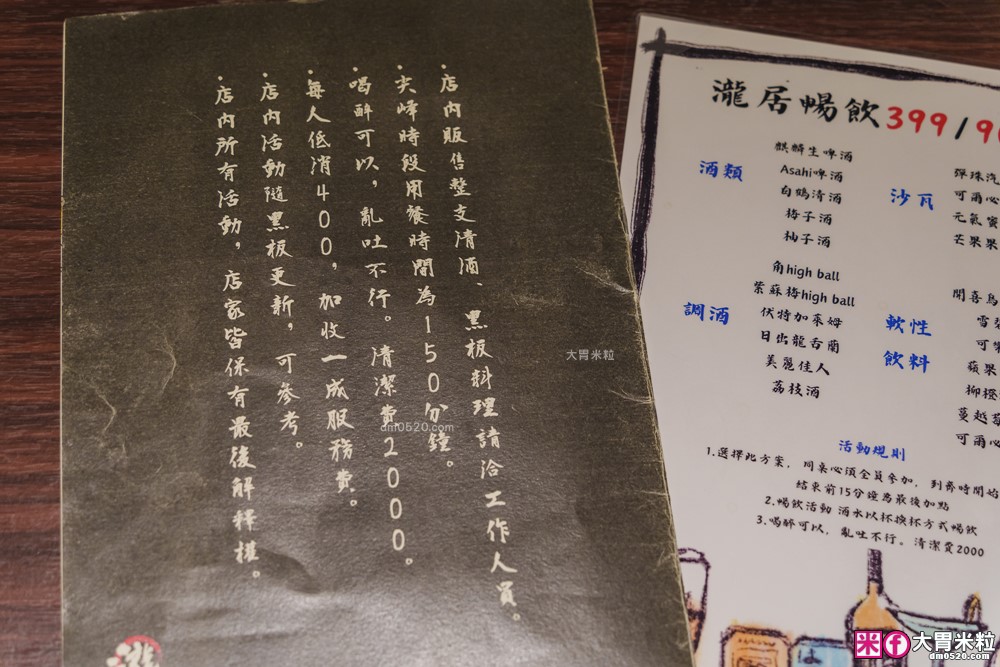 ・店內販售整支清酒、黑板料理請洽工作人員。
・尖峰時段用餐時間為150分鐘。
・喝醉可以,亂吐不行。清潔費2000。
・每人低消400,加收一成服務費。
・店內活動隨黑板更新,可參考。
・店內所有活動,店家皆保有最後解釋權。
瀧
瀧居暢飲399/9
酒類
麒麟生啤酒
Asahi啤酒
白鶴清酒
梅子酒
柚子酒
調酒
角high ball
紫蘇梅high ball
伏特加萊姆
日出龍舌蘭
美麗佳人
荔枝酒
沙瓦
彈珠汽
可爾必
元氣蜜
芒果果
軟性
飲料
開喜烏
雪
可
蘋果
柳橙
蔓越莓
可爾必
活動規則
1.選擇此方案, 同桌必須全員參加, 到齊時間始
結束前15分鐘為最後加點
2.暢飲活動 酒水以杯換杯方式暢飲
3.喝醉可以, 亂吐不行。清潔費2000
大胃米粒
dm0520.com
米 f 大胃米粒
dm0520.com